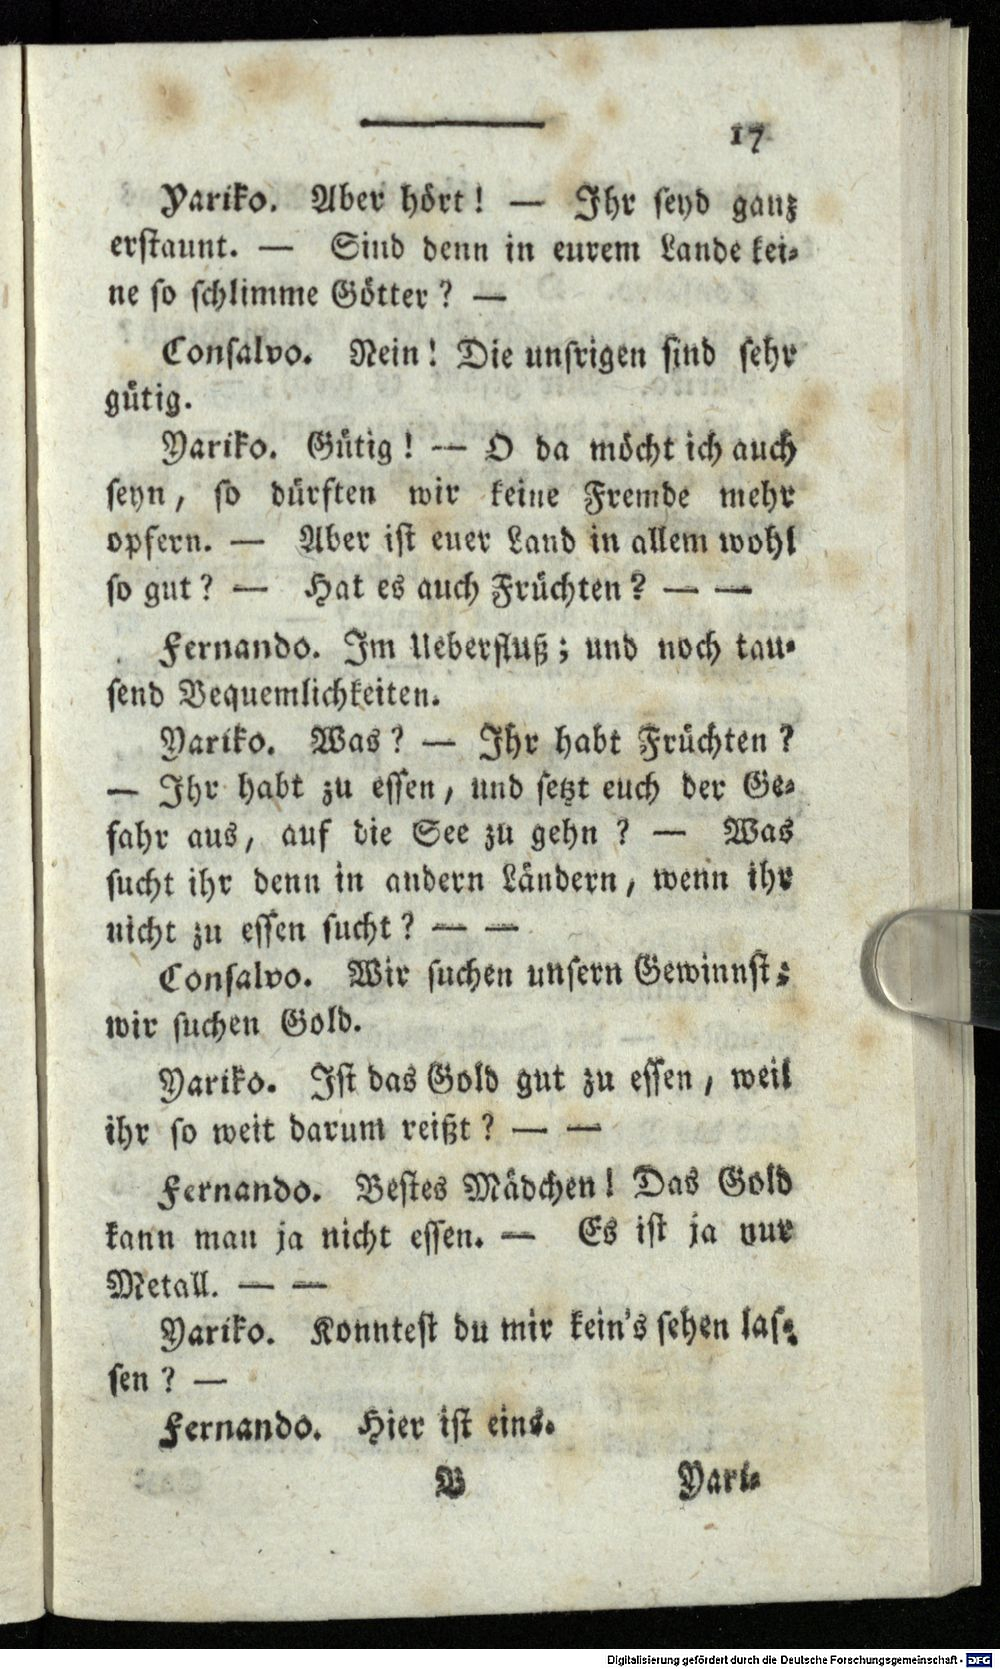 17
Yariko. Aber hört! — Ihr seyd ganz
erstaunt. — Sind denn in eurem Lande kei-
ne so schlimme Götter? —
Consalvo. Nein! Die unsrigen sind sehr
gütig.
Yariko. Gütig! — O da möcht ich auch
seyn, so dürften wir keine Fremde mehr
opfern. — Aber ist euer Land in allem wohl
so gut? — Hat es auch Früchten? — —
Fernando. Im Ueberfluß; und noch tau-
send Bequemlichkeiten.
Yariko. Was? — Ihr habt Früchten?
— Ihr habt zu essen, und setzt euch der Ge-
fahr aus, auf die See zu gehn? — Was
sucht ihr denn in andern Ländern, wenn ihr
nicht zu essen sucht? — —
Consalvo. Wir suchen unsern Gewinnst;
wir suchen Gold.
Yariko. Ist das Gold gut zu essen, weil
ihr so weit darum reißt? — —
Fernando. Bestes Mädchen! Das Gold
kann man ja nicht essen. — Es ist ja nur
Metall. — —
Yariko. Konntest du mir kein's sehen las-
sen? —
Fernando. Hier ist eins.
B Yari-
Digitalisierung gefördert durch die Deutsche Forschungsgemeinschaft - DFG